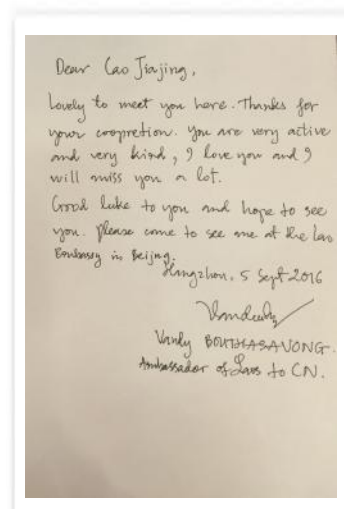 Dear Cao Jiajing,
Lovely to meet you here. Thanks for
your coopretion. You are very active
and very kind, I love you and I
will miss you a lot.
Good luke to you and hope to see
you. Please come to see me at the Lao
Embassy in Beijng.
Hangzhou, 5 Sept 2016
Vandy BOUTHASAVONG.
Ambassador of Laos to CN.